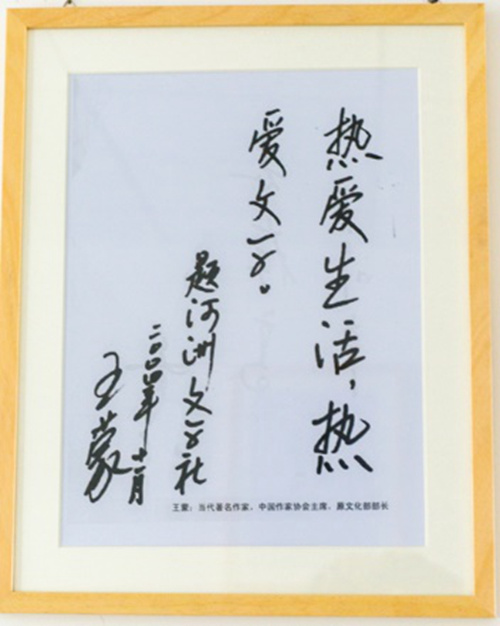 热爱生活，热
爱文学。
题河洲文学社
二〇〇四年十一月
王蒙
王蒙：当代著名作家，中国作家协会主席，原文化部部长